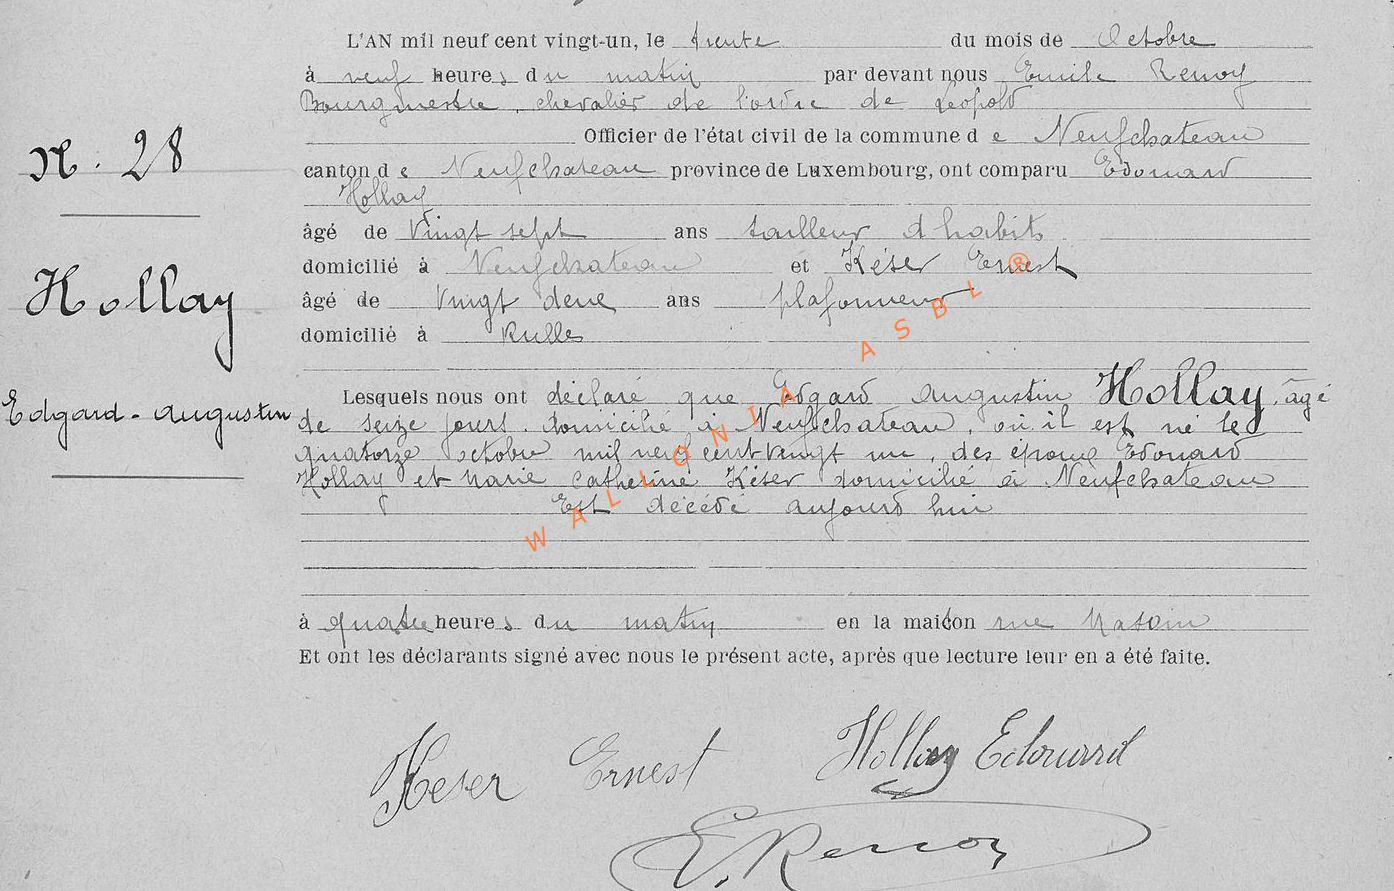 L'AN mil neuf cent vingt-un, le trente du mois de Octobre
à neuf heures du matin par devant nous Emile Renoy
Bourgmestre, chevalier de l'ordre de Léopold
Officier de l'état civil de la commune de Neufchateau
N. 28
canton de Neufchateau province de Luxembourg, ont comparu Edouard
Hollay
âgé de Vingt sept ans tailleur d'habits
domicilié à Neufchateau et Késer Ernest
Hollay
âgé de Vingt deux ans plafonneur
domicilié à Rulles
Lesquels nous ont déclaré que Edgard Augustin Hollay, âgé
Edgard-Augustin
de seize jours, domicilié à Neufchateau, où il est né le
quatorze octobre mil neuf cent vingt un, des époux Edouard
Hollay et Marie Catherine Késer domicilié à Neufchateau
Est décédé aujourd'hui
WALLONIA ASBL ®
à quatre heures du matin en la maison rue
Et ont les déclarants signé avec nous le présent acte, après que lecture leur en a été faite.
Keser Ernest Hollay Edouard
E. Renoy